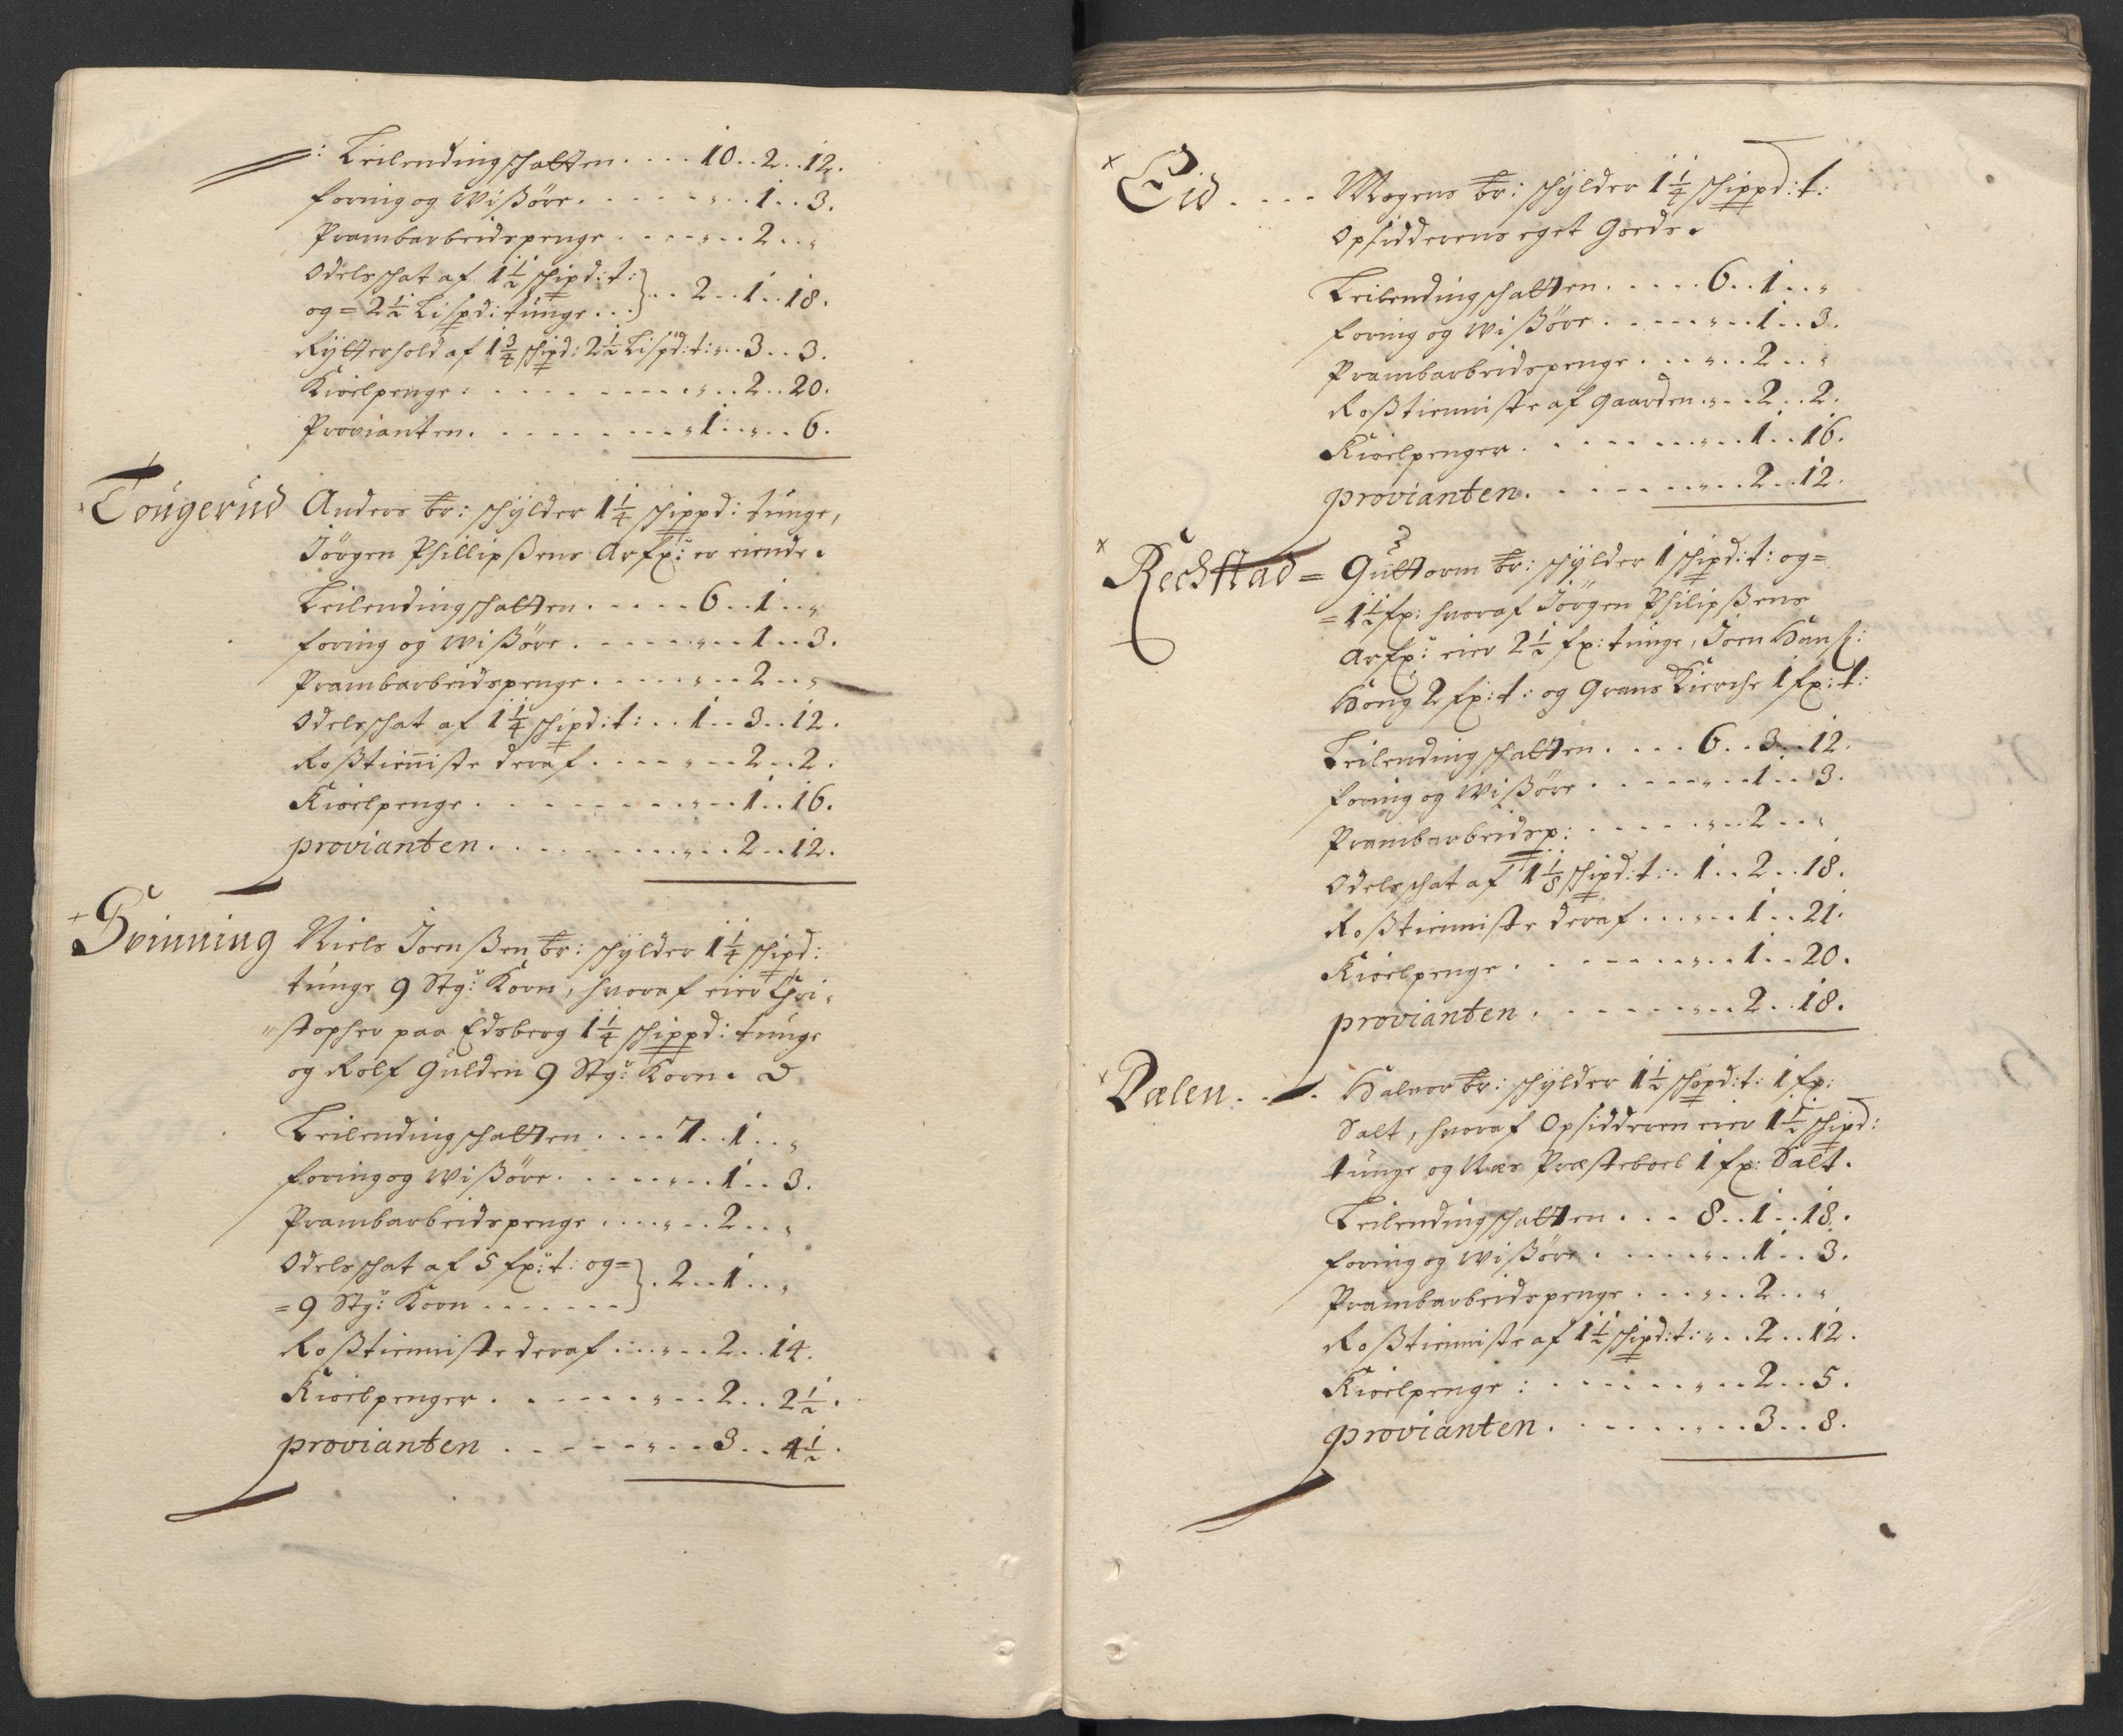 : Leilendingschatten. . . . 10. . 2. . 12.
foring og Wissøre. . . . . . „ . . 1. . 3.
Prambarbeidspenge . . . . „ . . 2. . „
Odelsschat af 1½ schipd: t:
og= 2½ Lispd: tunge . . . } . . 2. . 1. . 18.
Rytterhold af 1¾ schipd: 2½ Lispd: t: „ . . 3. . 3.
Kioelpenge : . . . . . . . . „ . . 2. . 20.
Provianten. . . . . . . . . „ 1. . „ . . 6.
Tougerud Anders br: schylder 1¼ schippd: tunge,
Jørgen Phillipssens Arfx: er eiende.
Leilendingschatten. . . . . 6. . 1. . „
foring og Wissøre . . . . . „ . . 1. . 3.
Prambarbeidspenge. . . . . „ . . 2. . „
Odelsschat af 1¼ schipd: t: . . 1. . 3. . 12.
Rosstienniste deraf . . . . „ . . 2. . 2.
Kioelpenge . . . . . . . . „ . . 1. . 16.
provianten. . . . . . . . . „ . . 2. . 12.
+ Svinning Niels Joenssen br: schylder 1¼ schipd:
tunge 9 Stg: Korn, hvoraf eier Chri„
„stopher paa Edsberg 1¼ schippd: tunge
og Rolf Gulden 9 Stg: Korn.
Leilendingschatten . . . . 7. . 1. . „
foring og Wissøre. . . . . „ . . 1. . 3.
Prambarbeidspenge . . . . „ . . 2. . „
Odelsschat af 5 fx: t: og=
=9 Stg: Korn . . . . . . . } . 2. . 1. . „
Rosstienniste deraf . . . „ . . 2. . 14.
Kioelpenger . . . . . . „ . . 2. . 2½.
provianten . . . . . . „ . . 3. . 4½.
x Eid. . . . Mogens br: schylder 1¼ schippd: t:
Opsidderens eget Goeds.
Leilendingschatten. . . . . 6. . 1. . „
foring og Wissøre . . . . . „ . . 1. . 3.
Prambarbeidspenge . . . „ . . 2. . „
Rosstienniste af gaarden. „ . . 2. . 2.
Kioelpenger . . . . . . . „ . . 1. . 16.
provianten. . . . . . . „ . . 2. . 12.
x Rechstad = Guttorm br: schylder 1 schipd: t: og=
= 1½ fx: hvoraf Jørgen Philipssens
Arfx: eier 2½ fx: tunge, Joen Hanss:
Houg 2 fx: t: og Grans Kierche 1 fx: t:
Leilendingschatten. . . . 6. . 3. . 12.
foring og Wissøre . . . . . „ . . 1. . 3.
Prambarbeidsp: . . . . . „ . . 2. . „
Odelsschat af 1⅛ schipd: t: . 1. . 2. . 18.
Rosstienniste deraf . . . „ . . 1. . 21.
Kioelpenge . . . . . . . „ . . 1. . 20.
provianten . . . . . . . „ . . 2. . 18.
x Dælen. . . . Halvor br: schylder 1½ schipd: t: 1 fx:
Salt, hvoraf Opsidderen eier 1½ schipd:
tunge og Næs Præsteboel 1 fx: Salt.
Leilendingschatten. . . 8. . 1. . 18.
foring og Wissøre . . . . . „ . . 1. . 3.
Prambarbeidspenge . . . „ . . 2. . „
Rosstienniste af 1½ schipd: t: „ . . 2. . 12.
Kioelpenge : . . . . . . „ . . 2. . 5.
provianten. . . . . . . „ . . 3. . 8.